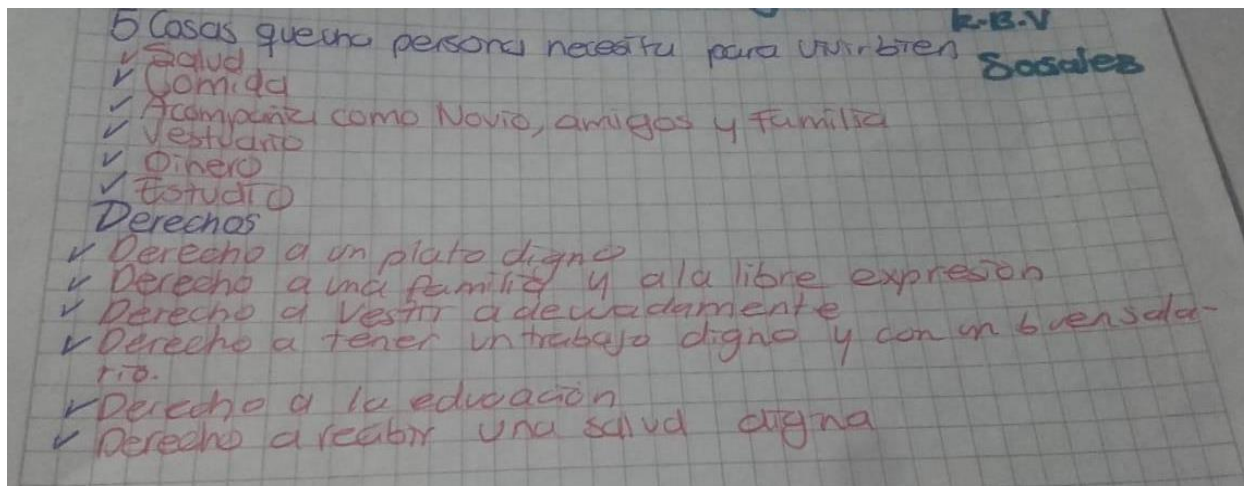 R.B.V
5 Cosas que una persona necesita para vivir bien
Sosales
✓ Salud
✓ Comida
✓ Acompañiz como Novio, amigos y Familia
✓ Vestuario
✓ Dinero
✓ Estudio
Derechos
✓ Derecho a un plato digno
✓ Derecho a una familia y ala libre expresion
✓ Derecho a vestir adecuadamente
✓ Derecho a tener un trabajo digno y con un buen sala-
rio.
✓ Derecho a la educación
✓ Derecho a recibir una salud digna